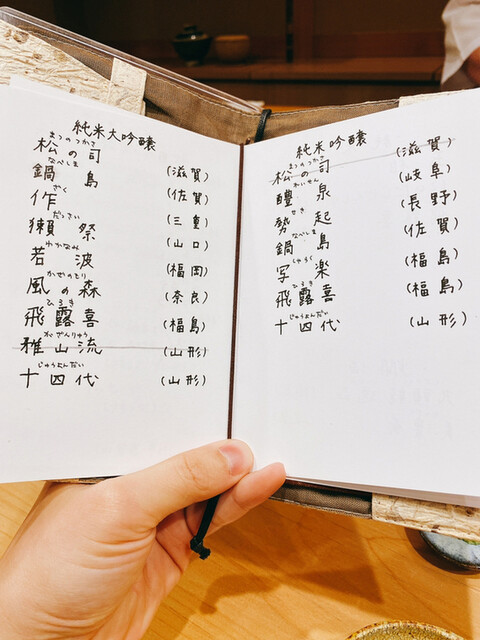 純米大吟醸
まつのつかさ
松の司 (滋賀)
なべしま
鍋島 (佐賀)
ざく
作 (三重)
だっさい
獺祭 (山口)
わかなみ
若波 (福岡)
かぜのもり
風の森 (奈良)
ひろき
飛露喜 (福島)
がざんりゅう
雅山流 (山形)
じゅうよんだい
十四代 (山形)
純米吟醸
まつのつかさ
松の司 (滋賀)
れいせん
醴泉 (岐阜)
せき
勢起 (長野)
なべしま
鍋島 (佐賀)
しゃらく
写楽 (福島)
ひろき
飛露喜 (福島)
じゅうよんだい
十四代 (山形)